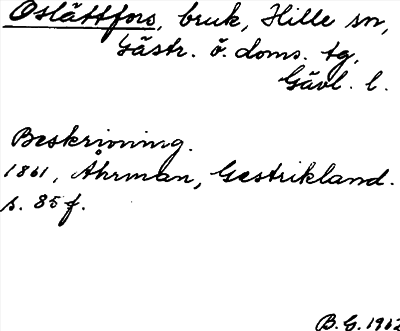 Oslättfors, bruk, Hille sn,
Gästr. ö. doms. tg,
Gävl. l.
Beskrivning.
1861, Ahrman, Gestrikland.
s. 85 f.
B.G. 1962